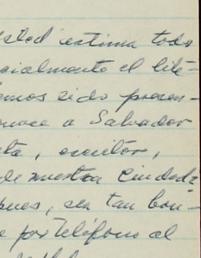 usted estima todo
cialmente el lite-
emos sido presen-
onoce a Salvador
ta, escritor,
de nuestra Ciudad;
pues, sea tan bon-
e por teléfono al